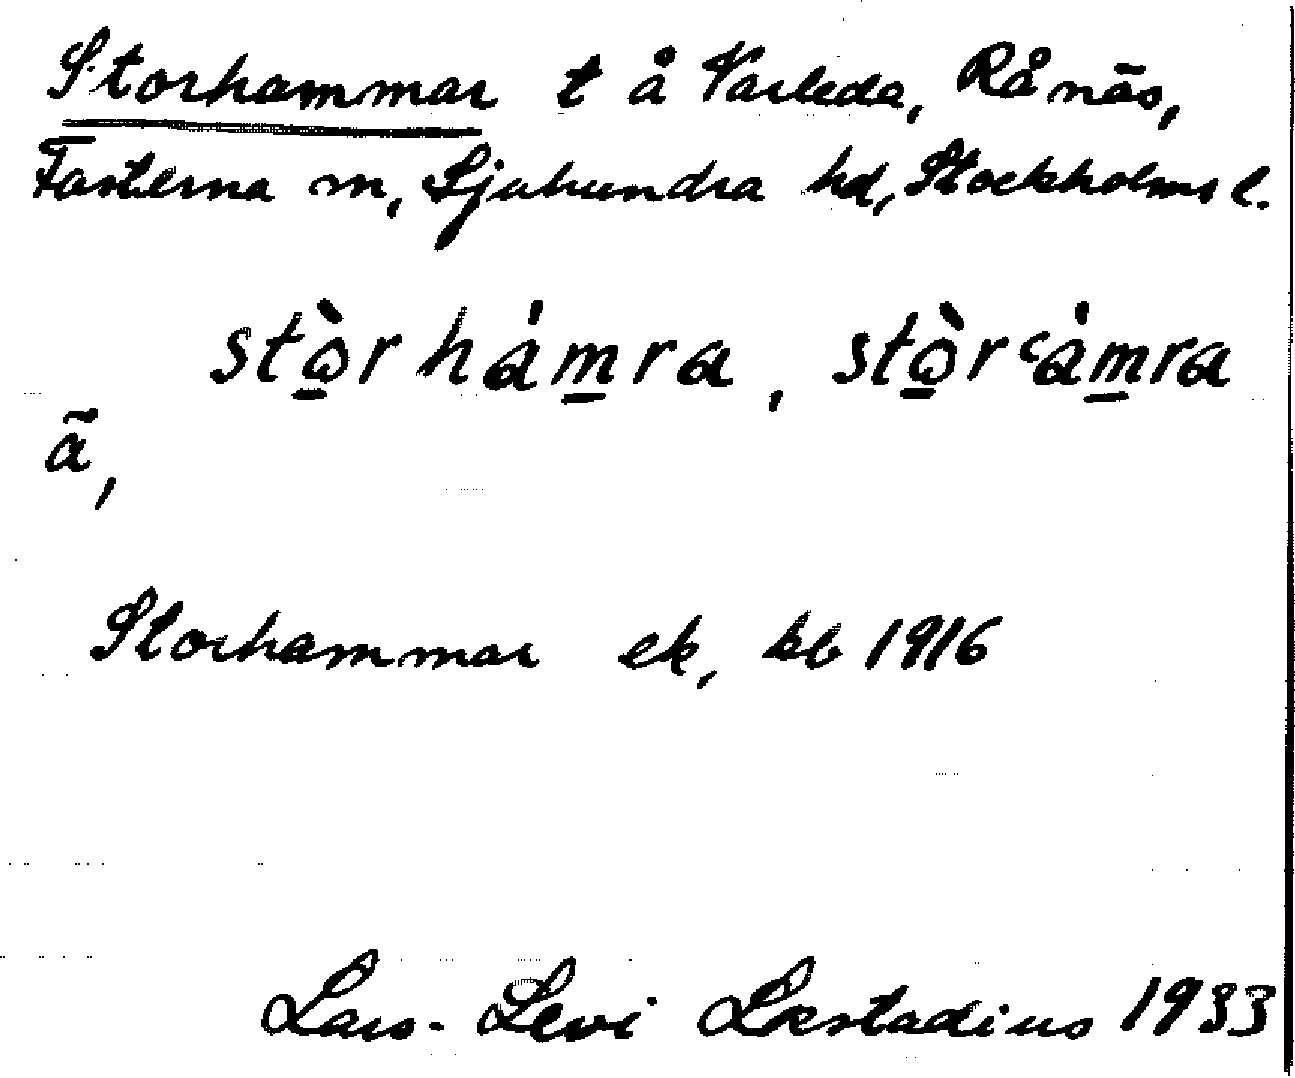 Storhammar t å Vasleda, Rånäs,
Fasterna sn, Sjuhundra hd, Stockholms l.
stò̱rhám̱ra, stò̱rʿám̱ra
ã,
Storhammar ek, kb 1916
Lars-Levi Læstadius 1933